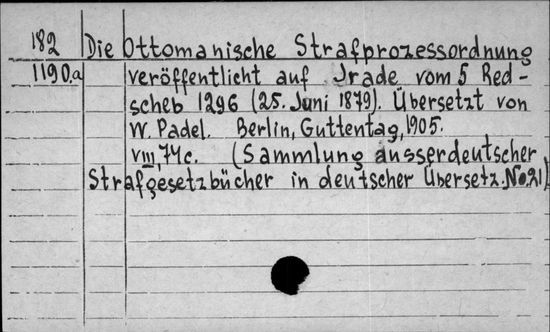 182 Die Ottomanische Strafprozessordnung
1190.a veröffentlicht auf Irade vom 5 Red-
scheb 1296 (25. Juni 1879). Übersetzt von
W. Padel. Berlin, Guttentag, 1905.
VIII, 74c. (Sammlung ausserdeutscher
Strafgesetzbücher in deutscher Übersetz. No.21)